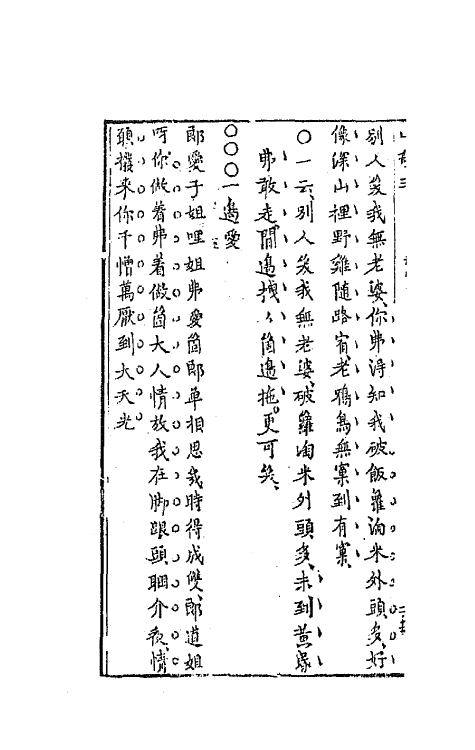 別人笑我無老婆你弗得知我破飯籮淘米外頭多好
像深山裡野雞隨路宿老鴉鳥無窠到有窠
〇一云別人笑我無老婆破籮淘米外頭多未到黃昏
弗敢走間邊拽人箇邊拖更可笑
〇〇〇一邊愛
郎愛子姐哩姐弗愛箇郎單相思幾時得成雙郎道姐
呀你做着弗着做箇大人情放我在脚跟頭睏介夜情
願撥來你千憎萬厭到大天光